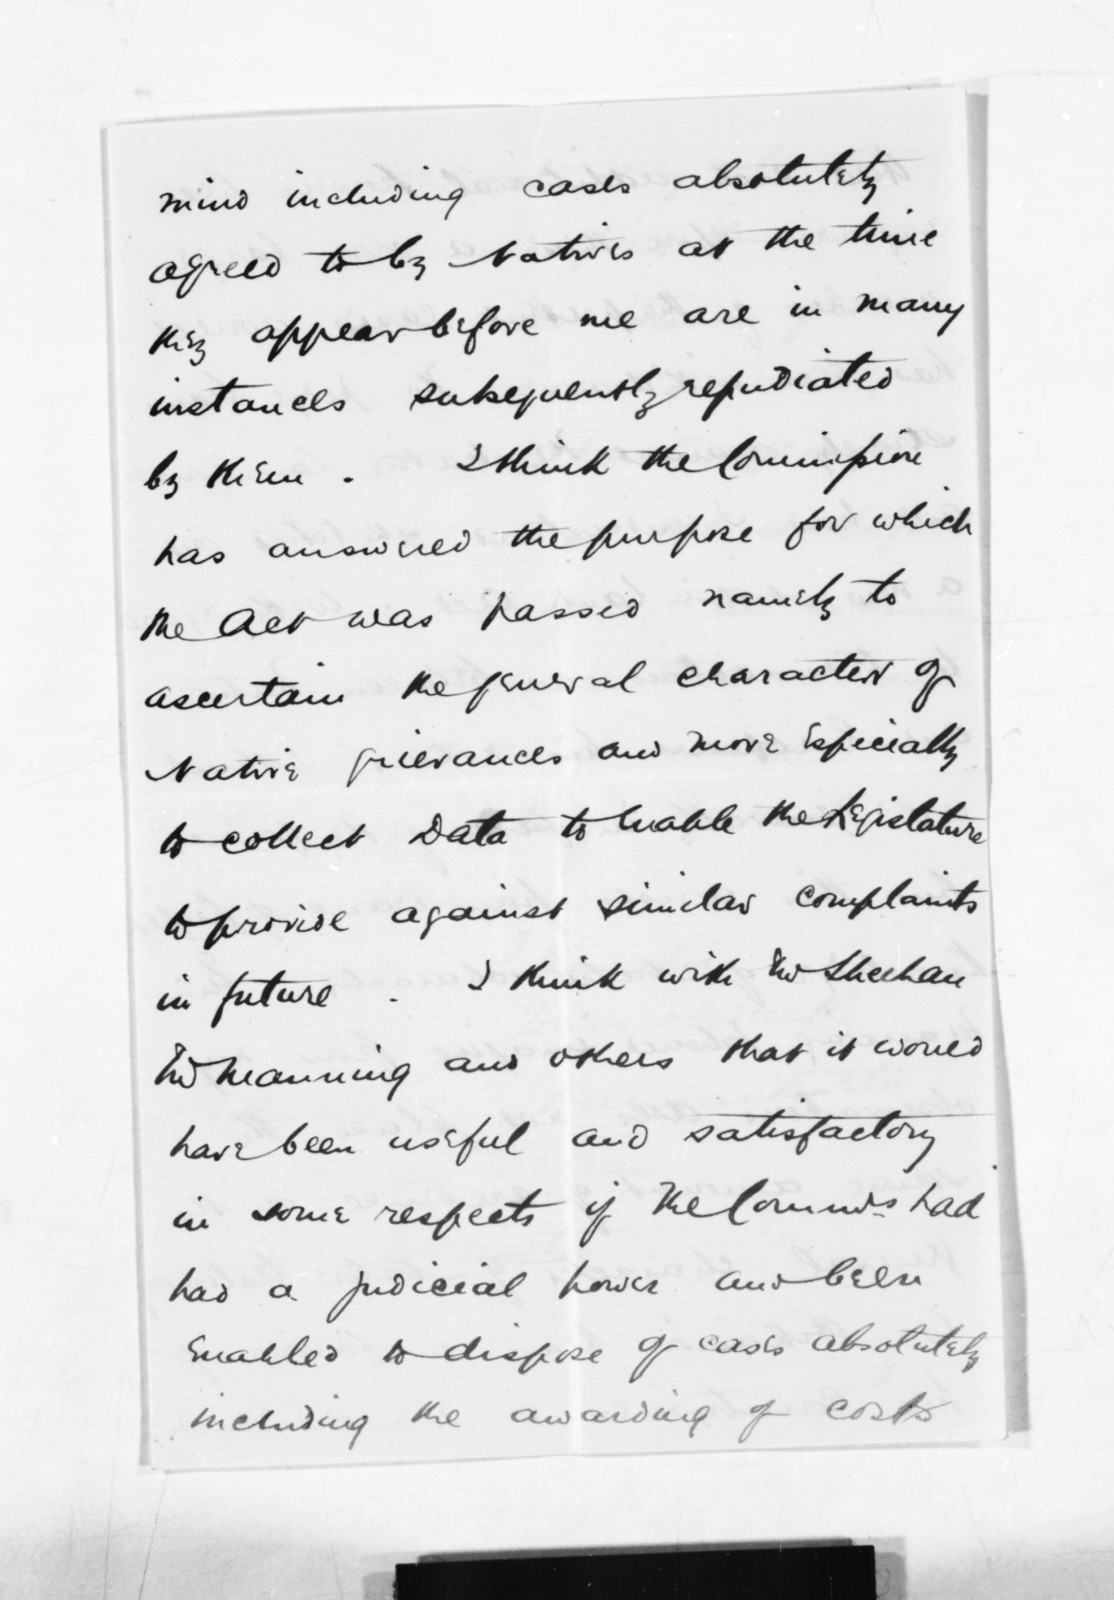 mind including cases absolutely
agreed to by Natives at the time
they appear before me are in many
instances subsequently repudiated
by them. I think the Commission
has answered the purpose for which
the Act was passed namely to
ascertain the general character of
Native grievances and more especially
to collect Data to enable the Legislature
to provide against similar complaints
in future. I think with Mr Sheehan
Mr Manning and others that it would
have been useful and satisfactory
in some respects if the Commrs had
had a judicial power and been
enabled to dispose of cases absolutely
including the awarding of costs